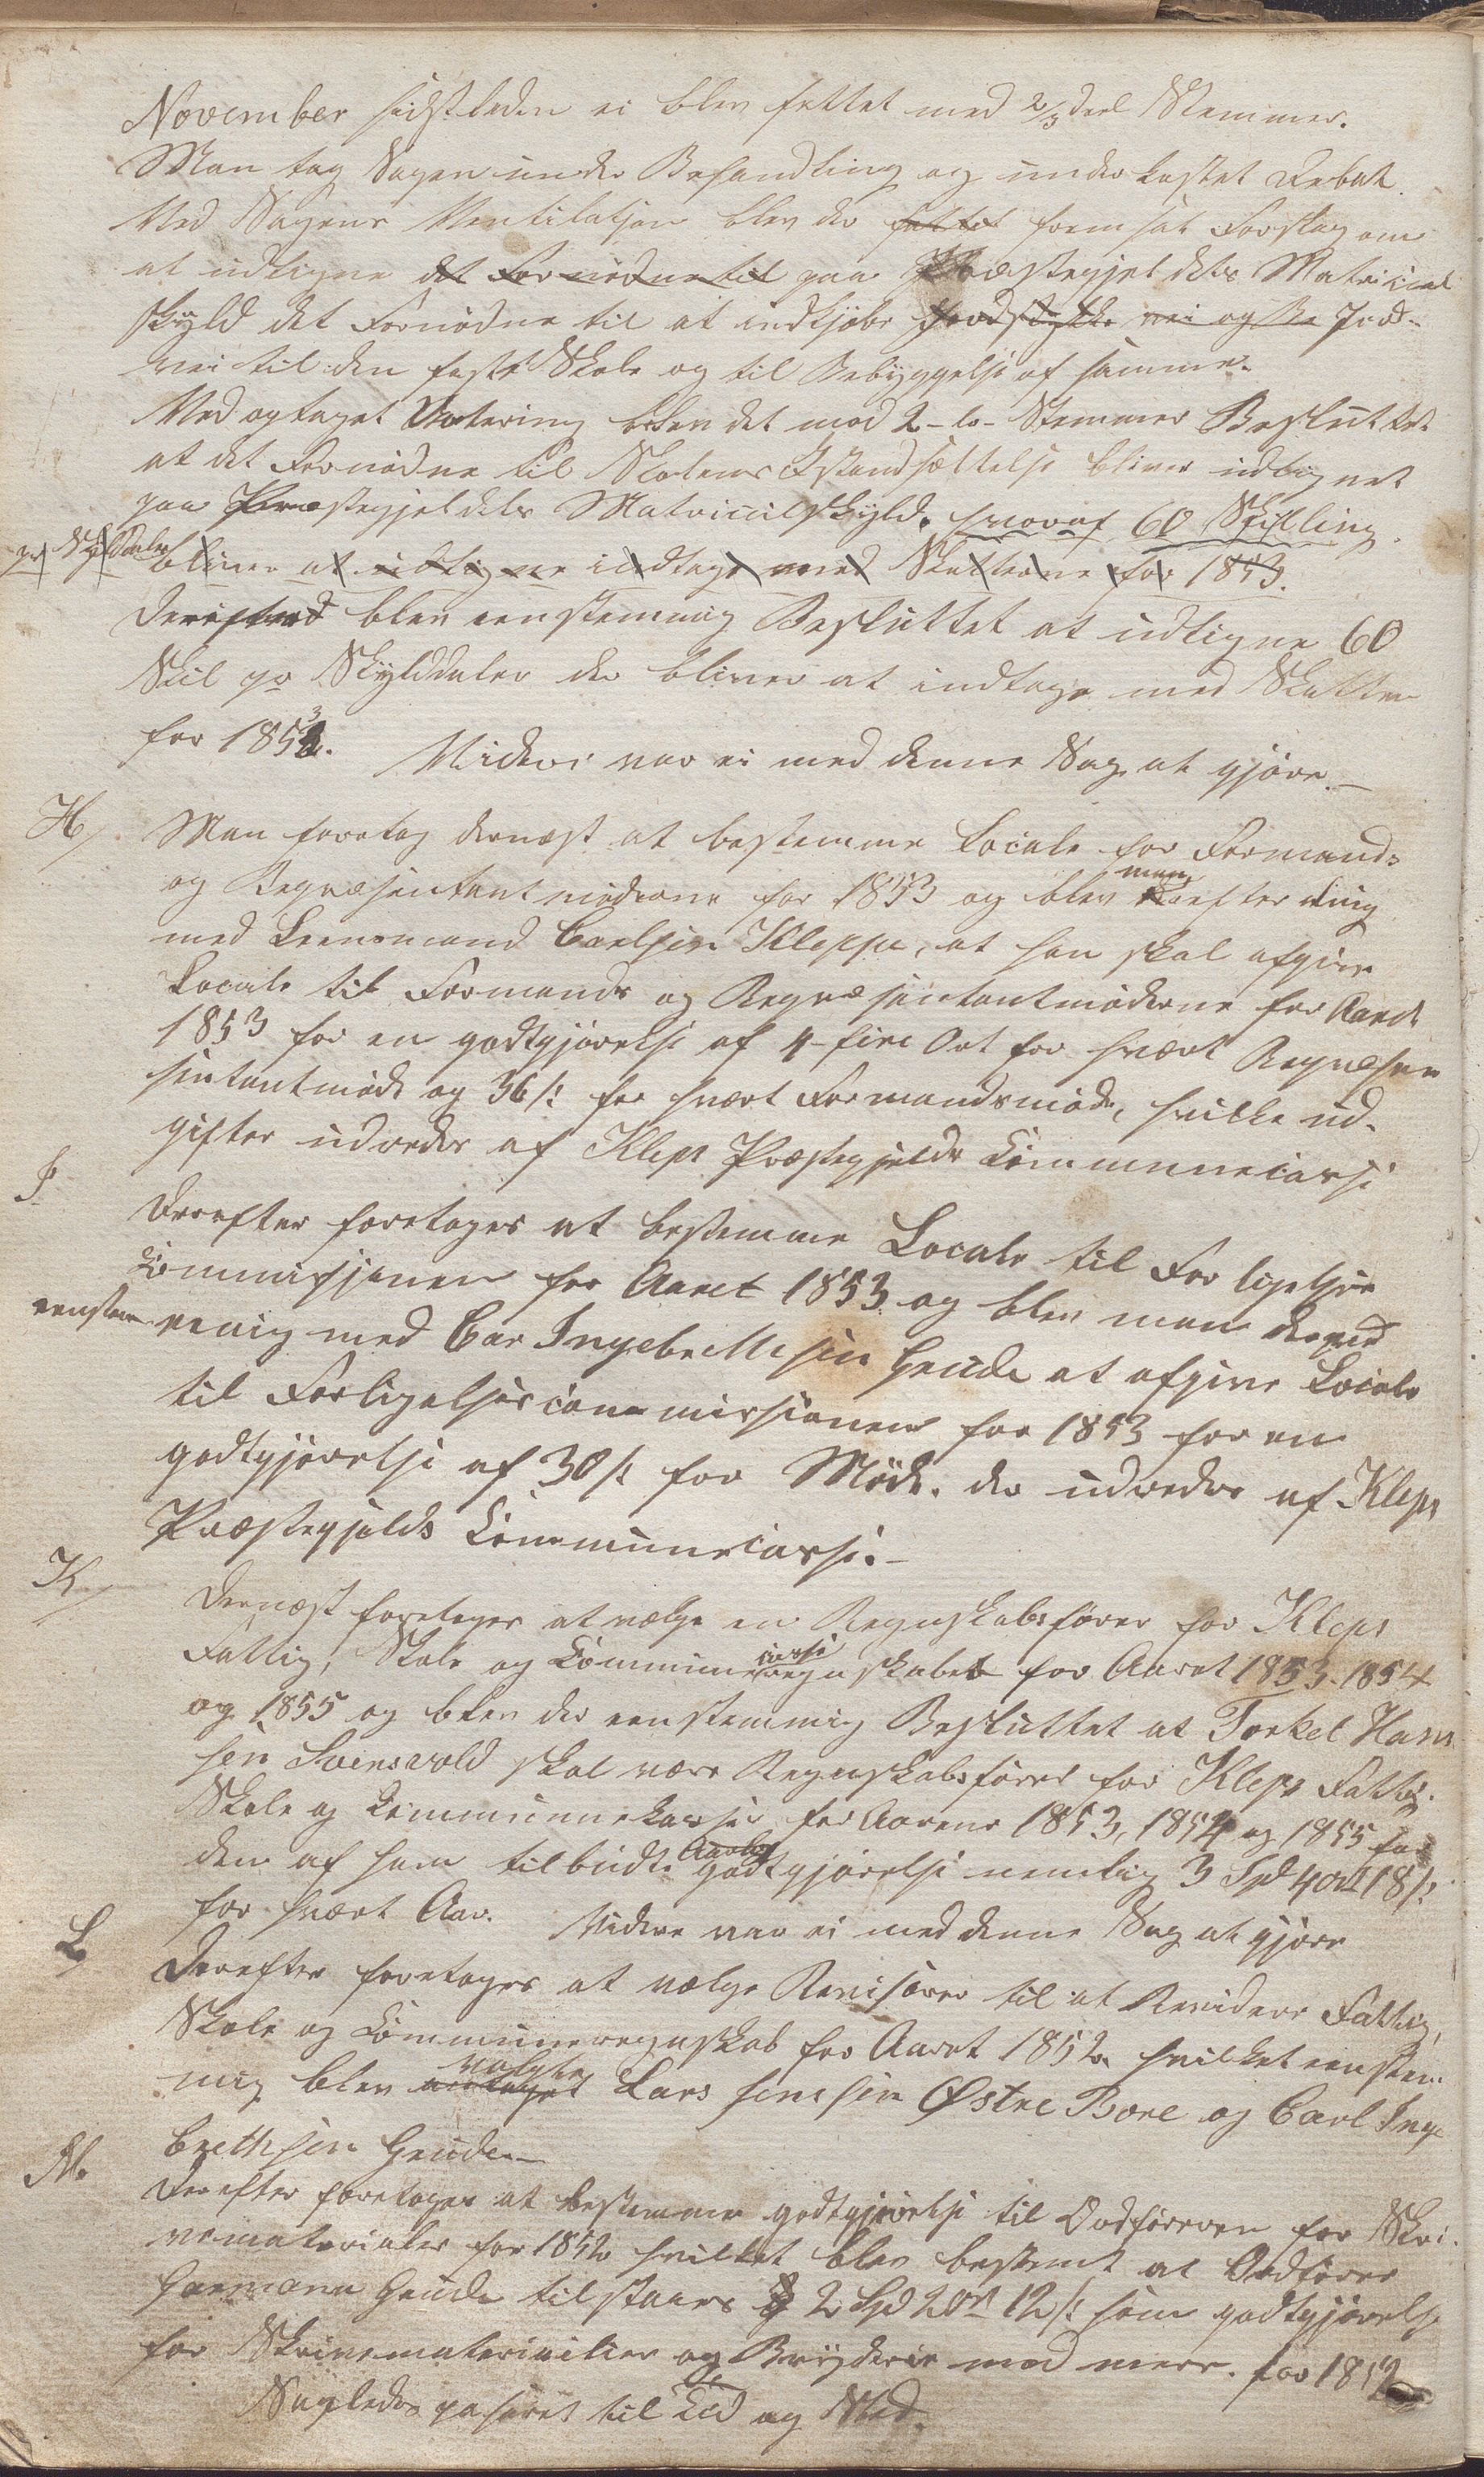 November sidstleden ei blev fattet med 2/3 deel Stemmer.
Man tog Sagen under Behandling og underkastet Debat.
Ved Sagens Ventilasjon blev der fattet fremsat Forslag om
at udligne det Fornødne til paa Præstegjeldets Matricul
skyld det Fornødne til at indkjøbe Jordstykke vei og Be Jord-
vei til den faste Skole og til Bebyggelse af samme.
Ved optaget Votering blev det med 2 - to - Stemmer Besluttet
at det Fornødne til Skolens Istandsættelse bliver udlignet
paa Præstegjeldets Matriculskyld. hvoraf 60 Skilling
pr Skylddaler bliver at udligne indtage med Skatterne for 1853.
Derefter blev eenstemmig Besluttet at udligne 60
Skil pr Skylddaler der bliver at indtage med Skatten
for 1853. Videre var ei med denne Sag at gjøre. —
H/ Man foretog dernæst at bestemme Locale for Formands
og Repræsentantmøderne for 1853 og blev man enig
med Leensmand Carlsen Kleppe, at han skal afgive
Locale til Formands og Repræsentantmøderne for Aaret
1853 for en godtgjørelse af 4 - fire Ort for hvert Repræsen
sentantmøde og 36 s: for hvert Formandsmøde, hvilke ud-
gifter udredes af Kleps Præstegjelds Communecasse
I Derefter foretoges at bestemme Locale til Forligelses
Commisjonen for Aaret 1853 og blev man derved
eenstem venig med Car Ingebrethsen Grude at afgive Locale
til Forligelsescommissionen for 1853 for en
godtgjørelse af 30 s: for Møde. der udredes af Kleps
Præstegjelds Communecasse. —
K/ Dernæst foretoges at vælge en Regnskabsfører for Kleps
Fattig, Skole og Communecasse regnskabet for Aaret 1853. 1854
og 1855 og blev der eenstemmig Besluttet at Torkel Han
sen Svensvold skal være Regnskabsfører for Kleps Fattig.
Skole og Communekasse for Aarene 1853, 1854 og 1855 for
den af ham tilbudte Aarlig godtgjørelse nemlig 3 Spd 4 ort 18 s:
for hvert Aar. Videre var ei med denne Sag at gjøre
L Derefter foretoges at vælge Revisorer til at Revidere Fattig,
Skole og Communeregnskab for Aaret 1852. hvilket eenstem
mig blev antaget valgte Lars Jensen Østre Bore og Carl Inge
brethsen Grude —
M. Derefter foretoges at bestemme godtgjørelse til Ordføreren for Skri-
vematerialer for 1852 hvilket blev bestemt at Ordfører
Gaemann Grude tilstaaes 2 Spd 2 Ort 12 s: som godtgjørelse
for Skrivematerialier og Bryderie med mere. for 1852
Sagledes passeret til Tid og Sted.